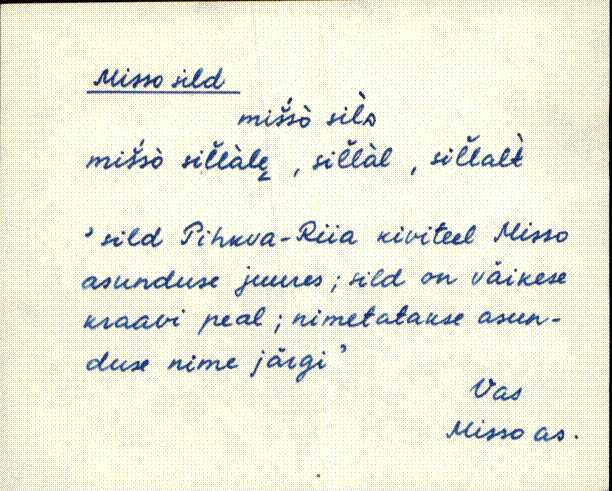 Misso sild
miš́šò sìlᴅ
miš́šò siľľàlę, siľľàl, siľľalt̀
' sild Pihkva-Riia kiviteel Misso
asunduse juures; sild on väikese
kraavi peal; nimetatakse asun-
duse nime järgi'
Vas
Misso as.